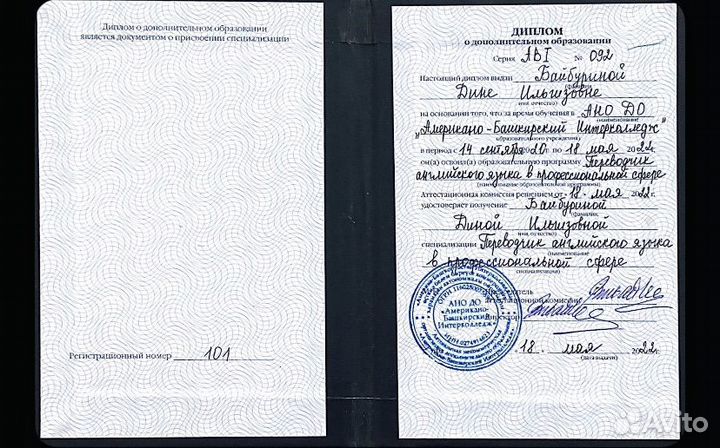 Диплом о дополнительном образовании
является документом о присвоении специализации
Регистрационный номер 101
ДИПЛОМ
о дополнительном образовании
Серия АВI № 092
Настоящий диплом выдан Байбуриной
(фамилия)
Дине Ильшзовне
имя, отчество)
на основании того, что за время обучения в АНО ДО
(наименование
"Американо-Башкирский Интерколледж"
образовательного учреждения)
в период с 14 сентября 2020 г. по 18 мая 2022 г.
он(а) освоил(а) образовательную программу Переводчик
английского языка в профессиональной сфере
(наименование образовательной программы)
Аттестационная комиссия решением от 18 мая 2022 г.
удостоверяет получение Байбуриной
(фамилия,
Диной Ильшзовной
имя, отчество)
специализации Переводчик английского языка
(наименование
в профессиональной сфере
специализации)
председатель
аттестационной комиссии
Директор
АНО ДО
«Американо-
Башкирский
Интерколледж»
18 мая 2022 г.
(дата выдачи)
Avito